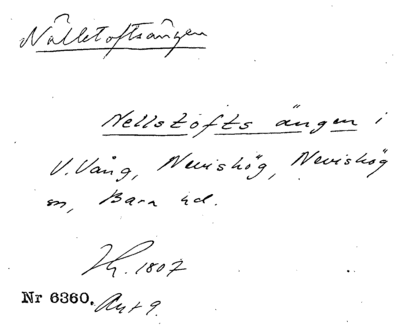 Nälletoftsängen
Nellstofts ängen i
V. Vång, Nevishög, Nevishög
sn, Bara hd.
Nr 6360. Akt 9.